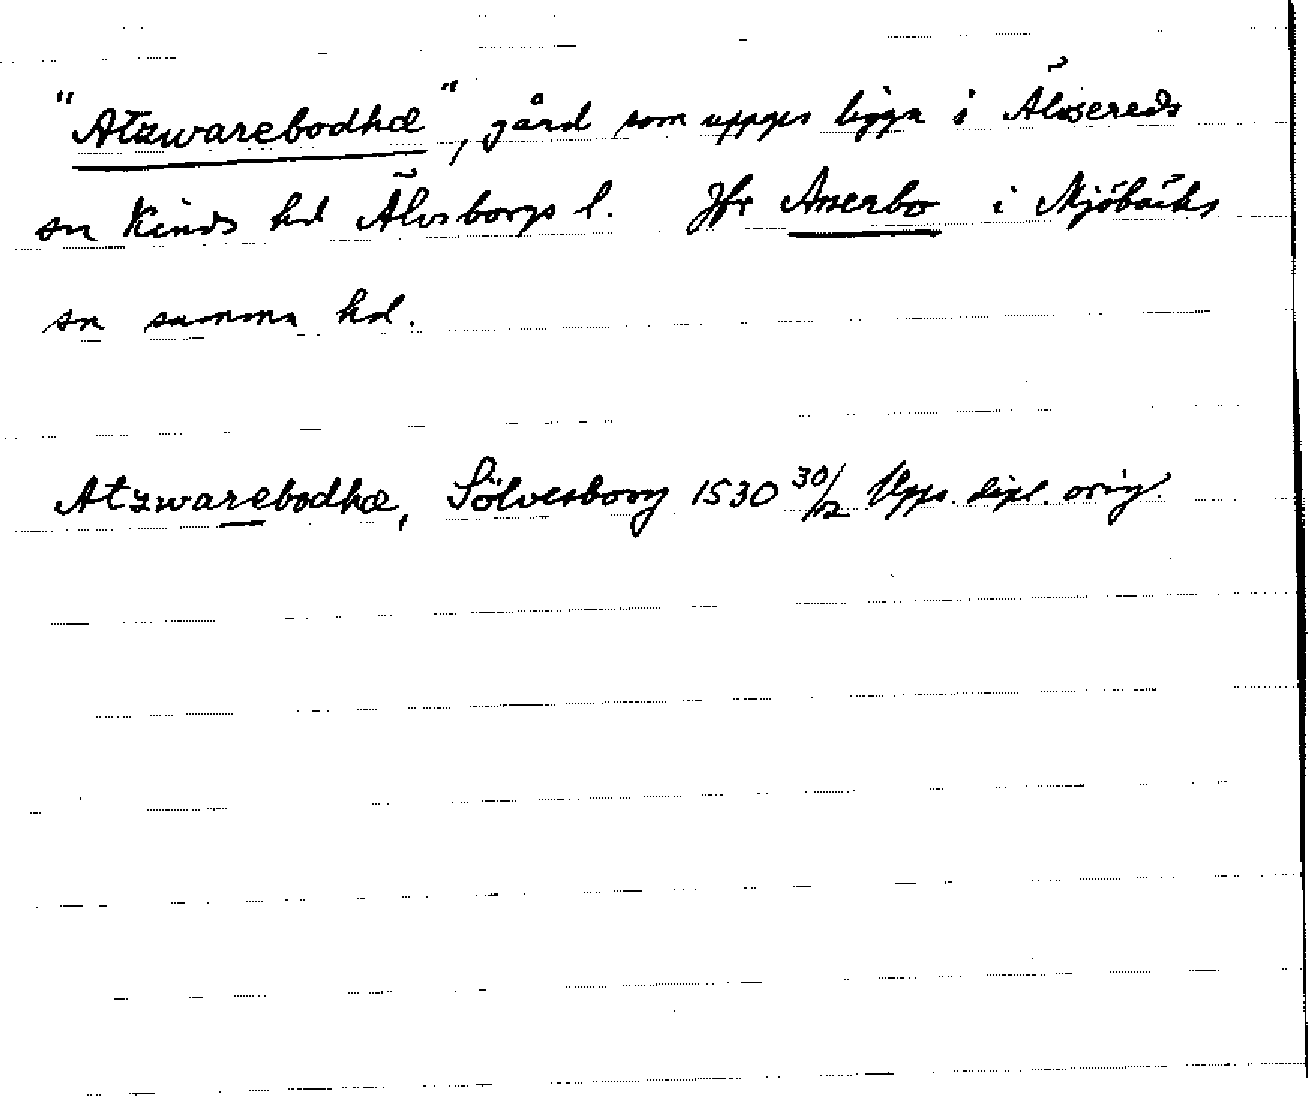 "Atzwarebodhæ", gård som uppges ligga i Älvsereds
sn Kinds hd Älvsborgs l. Jfr Asserbo i Mjöbäcks
sn samma hd.
Atzwarebodhæ, Sölvesborg 1530 30/12 Upps. dipl. orig.